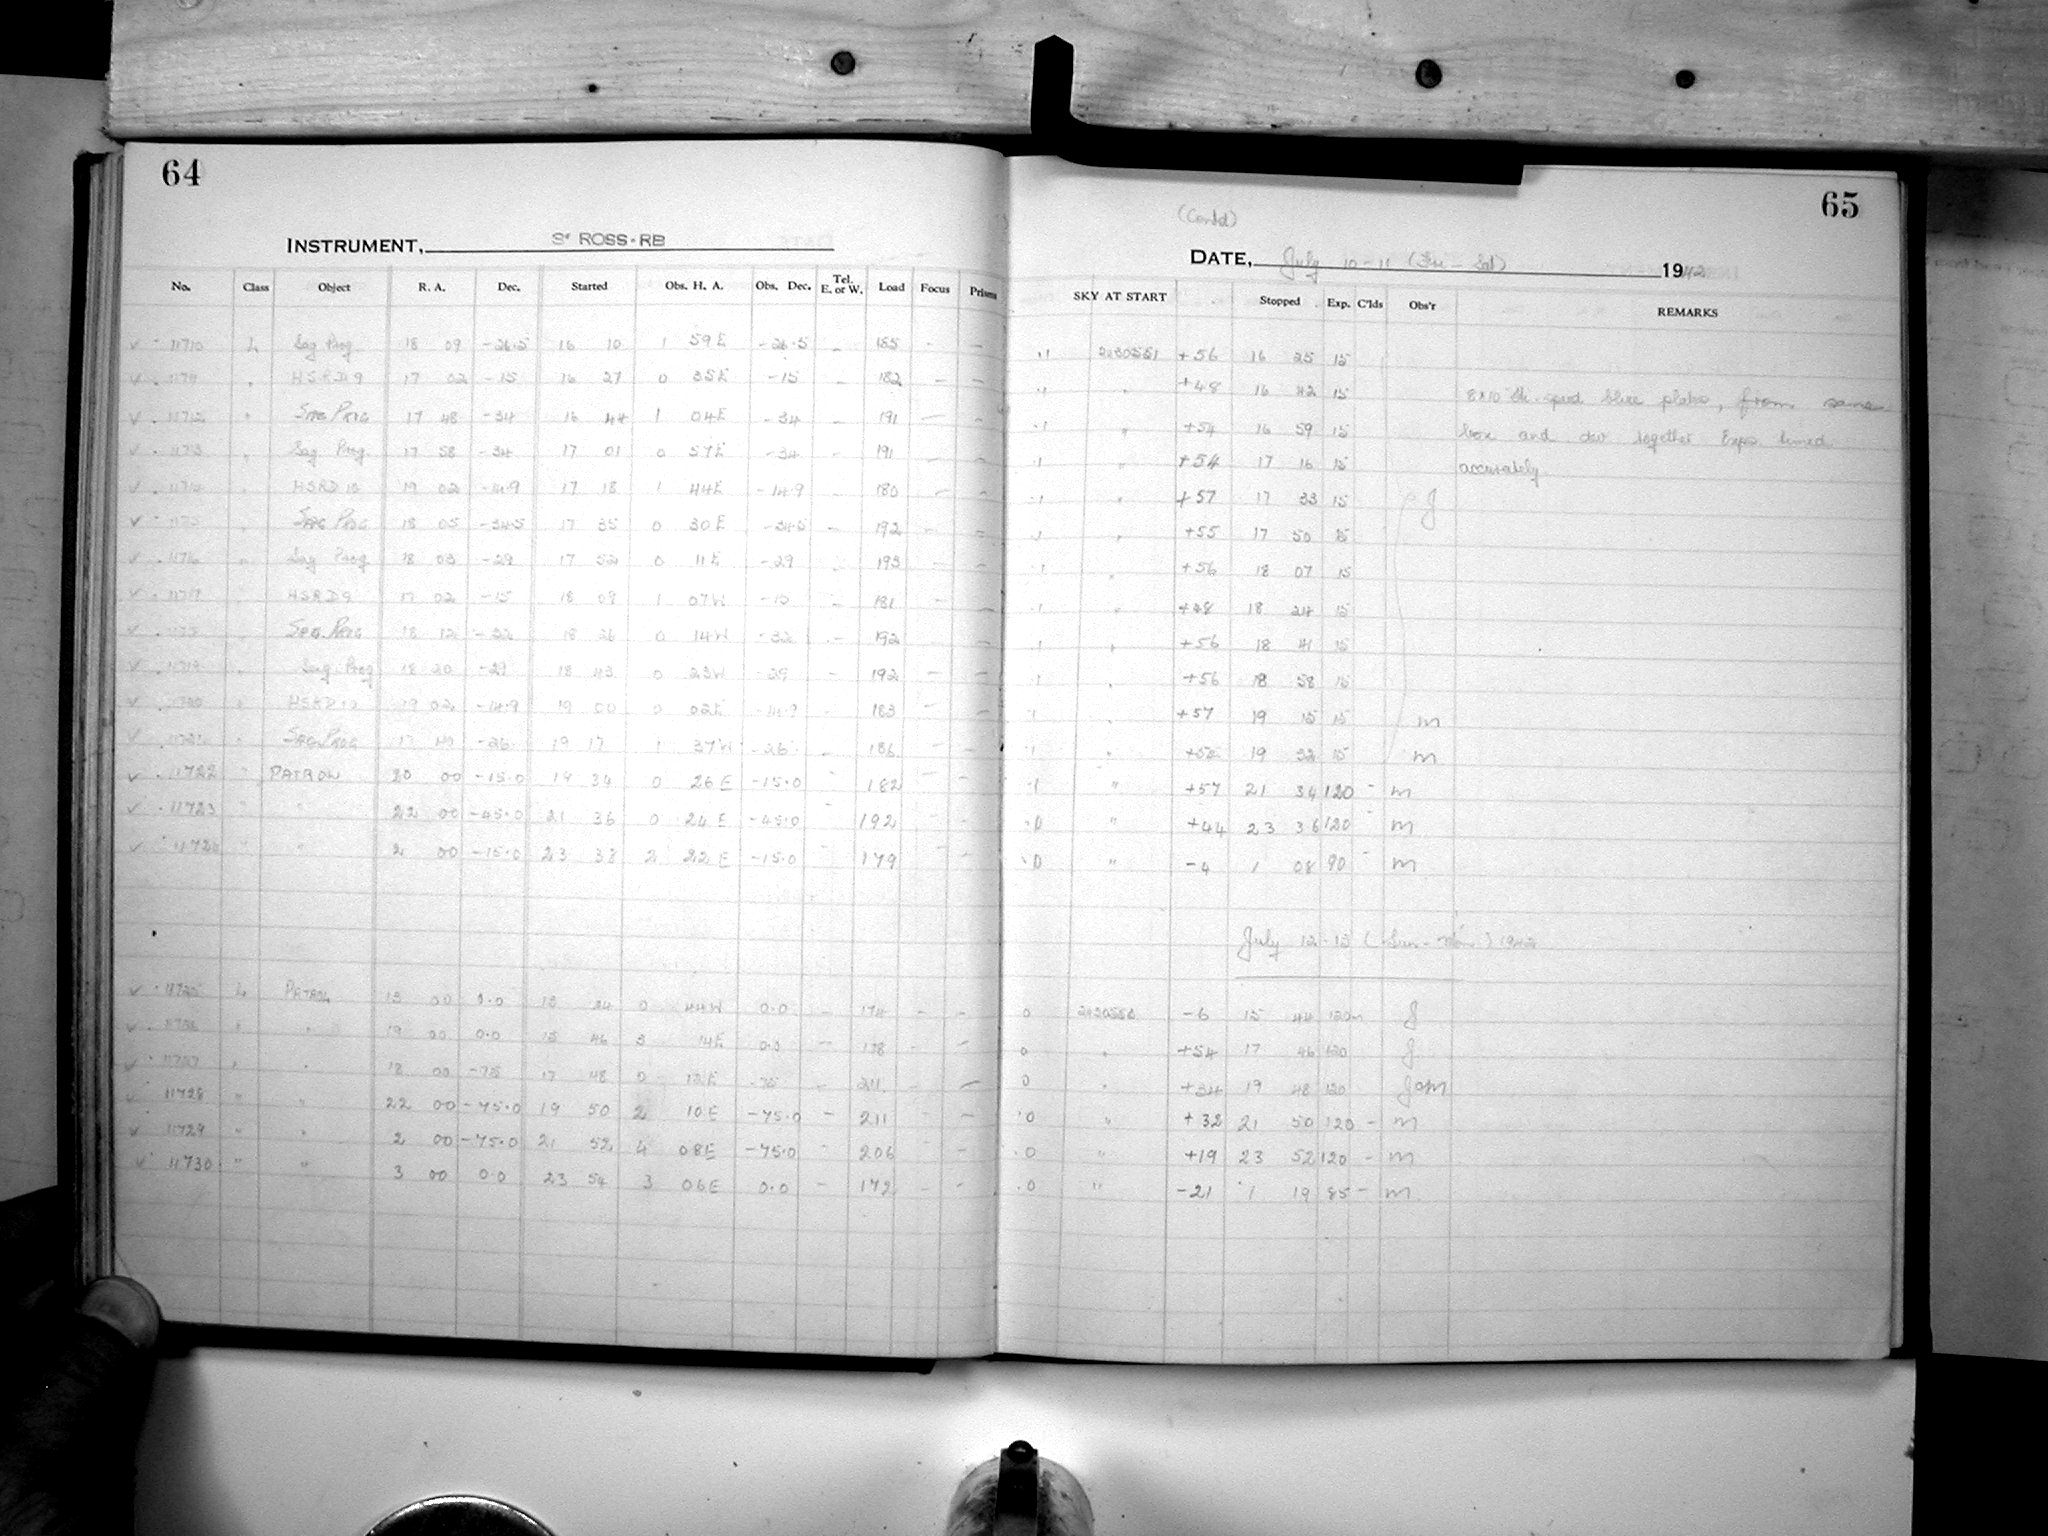 64
INSTRUMENT, 3" ROSS-RB
No. Class Object R. A. Dec. Started Obs. H. A. Obs. Dec. Tel. E. or W. Load Focus Prisms
11710 L Sag Prog 18 09 -26.5 16 10 1 59E -26.5 - 185 - -
11711 HSRD 9 17 02 -15 16 27 0 35E -15 - 182 - -
11712 SAG PROG 17 48 -34 16 44 1 04E -34 - 191 - -
11713 Sag Prog. 17 58 -34 17 01 0 57E -34 - 191 - -
11714 HSRD 10 19 02 -14.9 17 18 1 44E -14.9 180 - -
11715 SAG PROG 18 05 -34.5 17 35 0 30E -34.5 - 192 - -
11716 Sag Prog 18 03 -29 17 52 0 11E -29 193 - -
11717 HSRD 9 17 02 -15 18 09 1 07W -15 181 - -
SAG PROG 18 12 -32 18 26 0 14W -32 - 192 - -
11719 Sag Prog 18 20 -29 18 43 0 23W -29 - 192 - -
HSRD 10 19 02 -14.9 19 00 0 02E -14.9 183 - -
SAG PROG 17 -26 19 17 1 37W -26 - 186 - -
11722 " PATROL 20 00 -15.0 19 34 0 26E -15.0 - 182 - -
11723 " " 22 00 -45.0 21 36 0 24E -45.0 - 192 - -
11724 " " 2 00 -15.0 23 38 2 22E -15.0 - 179 - -
11725 L PATROL 15 00 0.0 13 44 0 44W 0.0 - 174 - -
11726 " " 19 00 0.0 15 46 3 14E 0.0 - - -
11727 " 18 00 -75 17 48 0 12E -75 - 211 - -
11728 " " 22 00 -75.0 19 50 2 10E -75.0 - 211 - -
11729 " " 2 00 -75.0 21 52 4 08E -75.0 - 206 - -
11730 " " 3 00 0.0 23 54 3 06E 0.0 - 172 - -
65
(Contd)
DATE, July 10-11 (Fri - Sat) 1942
SKY AT START Stopped Exp. C'lds Obs'r REMARKS
.1 2430551 +56 16 25 15
.1 " +48 16 42 15 8x10 speed blue plates, from same
.1 " +54 16 59 15 box and dev together Expos timed
.1 " +54 17 16 15 accurately
.1 " +57 17 33 15 J
.1 " +55 17 50 15
.1 " +56 18 07 15
.1 " +48 18 24 15
.1 " +56 18 41 15
.1 " +56 18 58 15
.1 " +57 19 15 15 m
.1 " 19 32 15 m
.1 " +57 21 34 120 - m
.0 " +44 23 36 120 - m
.0 " -4 1 08 90 - m
July 12-13 (Sun - Mon) 1942
0 2430553 -6 15 44 120m J
0 " +54 17 46 120 J
0 " +34 19 48 120 J&m
.0 " +32 21 50 120 - m
.0 " +19 23 52 120 - m
.0 " -21 1 19 85 - m